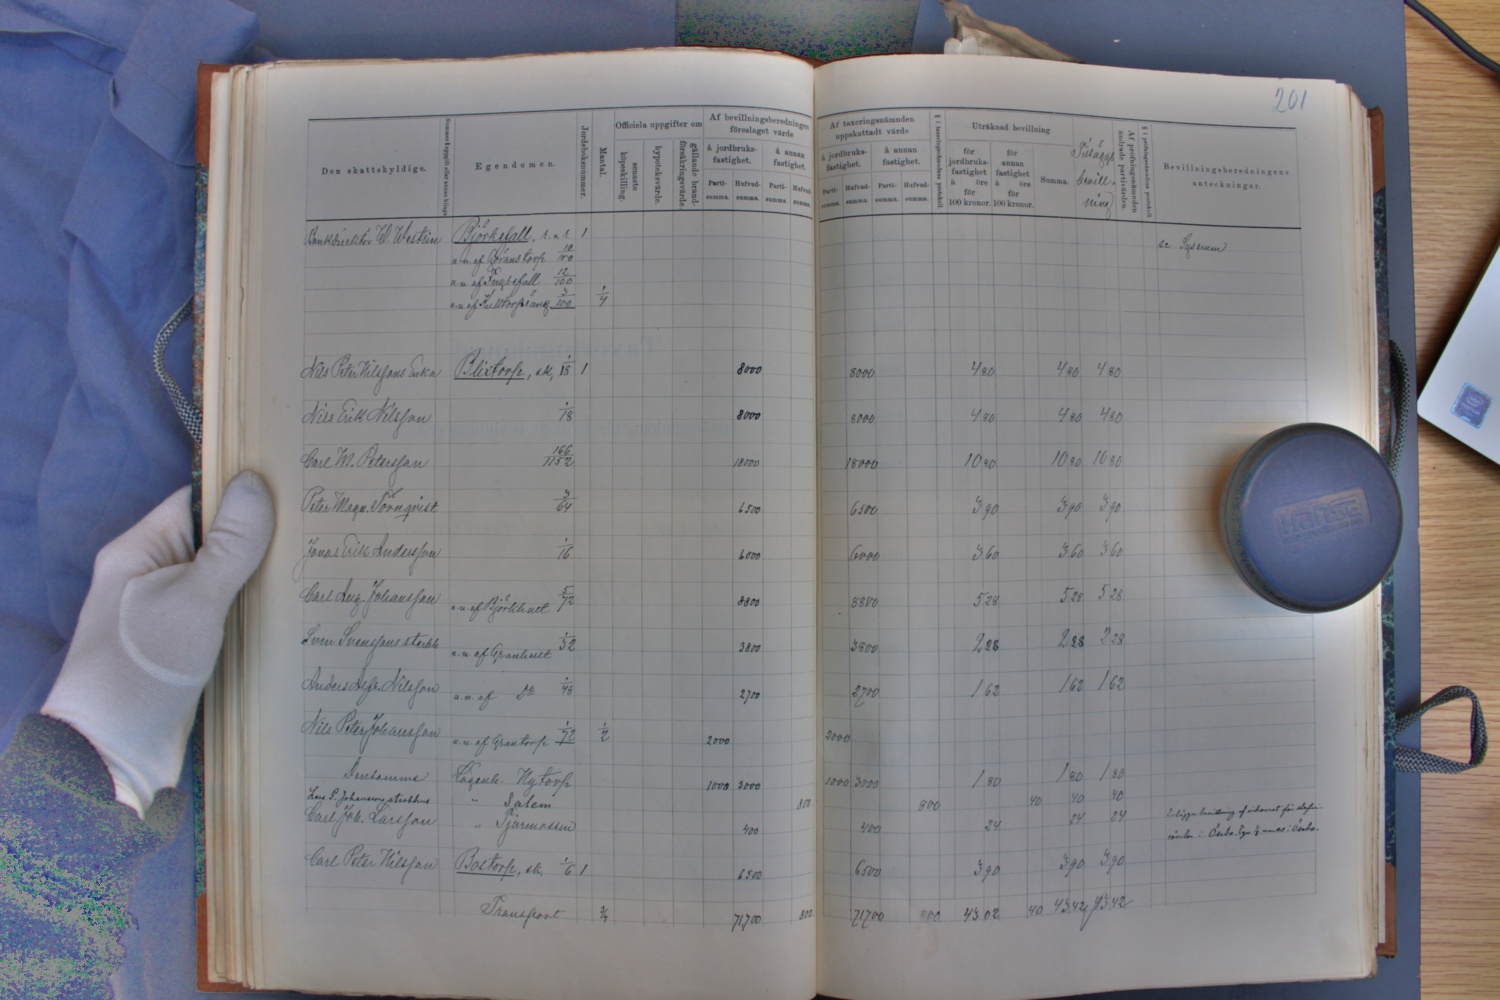 201
Den skattskyldige.
Egendomen.
Jordeboksnummer.
Mantal.
Officiela uppgifter om
senaste köpeskilling.
hypoteksvärde.
gällande brandförsäkringsvärde.
Af bevillningsberedningen föreslaget värde
å jordbruksfastighet.
å annan fastighet.
Partisumma.
Hufvudsumma.
Partisumma.
Hufvudsumma.
Af taxeringsnämnden uppskattadt värde
å jordbruksfastighet.
å annan fastighet.
Partisumma.
Hufvudsumma.
Partisumma.
Hufvudsumma.
§ i taxeringsnämndens protokoll.
Uträknad bevillning
för jordbruksfastighet à öre för 100 kronor.
för annan fastighet à öre för 100 kronor.
Summa.
Tilläggsbevillning
Af pröfningsnämnden ändrade partivärden.
§ i pröfningsnämndens protokoll
Bevillningsberedningens anteckningar.
Bankdirektör W. Westin Björkefall, 1
10/100
12/100
3/100 1/4
Nils Peter Nilssons Enka Blixtorp, sk, 1/18 1 8000 8000 4 80 4 80 4 80
Nils Erik Nilsson 1/18 8000 8000 4 80 4 80 4 80
Carl W. Petersson 166/1152 18000 18000 10 80 10 80 10 80
Peter Magn. Törnqvist 3/64 6500 6500 3 90 3 90 3 90
Jonas Erik Andersson 1/16 6000 6000 3 60 3 60 3 60
Carl Aug. Johansson u.u. af Björkhult 5/72 8800 8800 5 28 5 28 5 28
Sven Svenssons sterbh u.u. af Granhult 1/32 3800 3800 2 28 2 28 2 28
Anders Alfr. Nilsson u.u. af Do 1/48 2700 2700 1 62 1 62 1 62
Nils Peter Johansson u.u. af Grantorp 1/72 1/2 2000 2000
Densamme Lägenh. Nytorp 1000 3000 1000 3000 1 80 1 80 1 80
Lars P. Johanssons sterbhus " Salem 800 800 40 40 40
Carl Joh. Larsson " 400 400 24 24 24
Carl Peter Nilsson Bostorp, sk. 1/6 1 6500 6500 3 90 3 90 3 90
Transport 3/4 71,700 800 71700 800 43 02 40 43 42 43 42